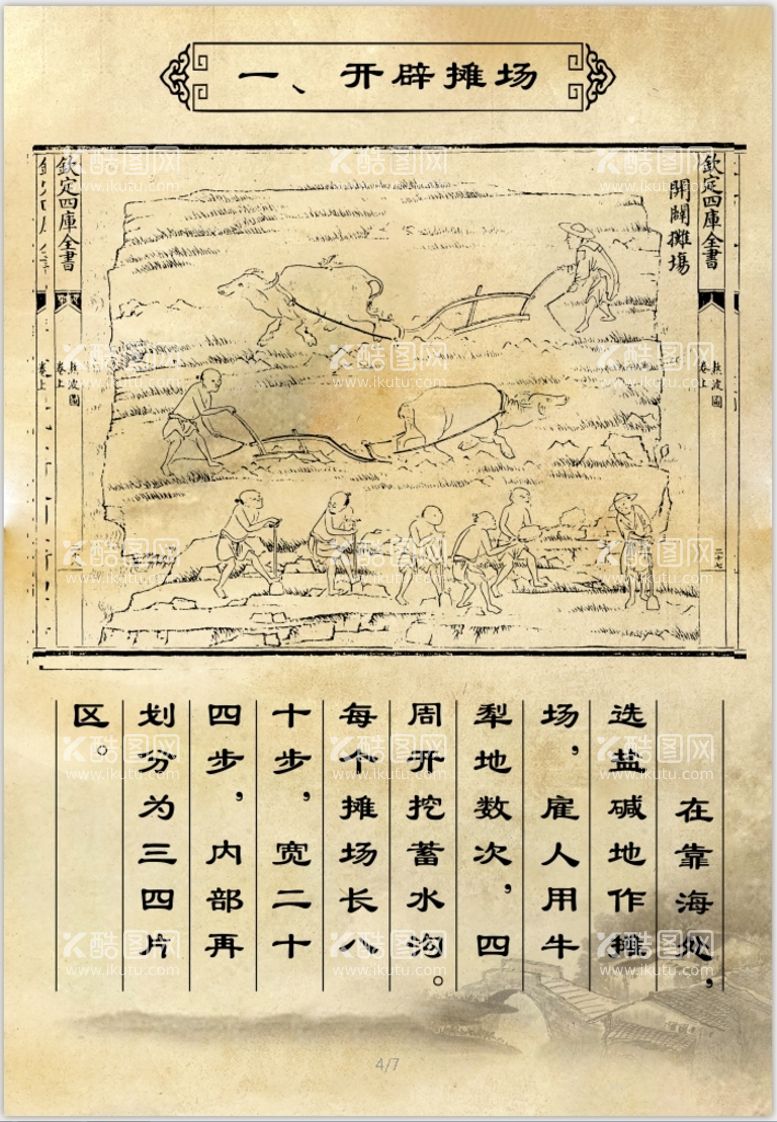 一、开辟摊场
欽定四庫全書
開闢攤場
熬波圖
卷上
二十七
欽定四庫全書
熬波圖
卷上
卷上
在靠海处，
选盐碱地作摊
场，雇人用牛
犁地数次，四
周开挖蓄水沟。
每个摊场长八
十步，宽二十
四步，内部再
划分为三四片
区。
4/7
酷图网
www.ikutu.com